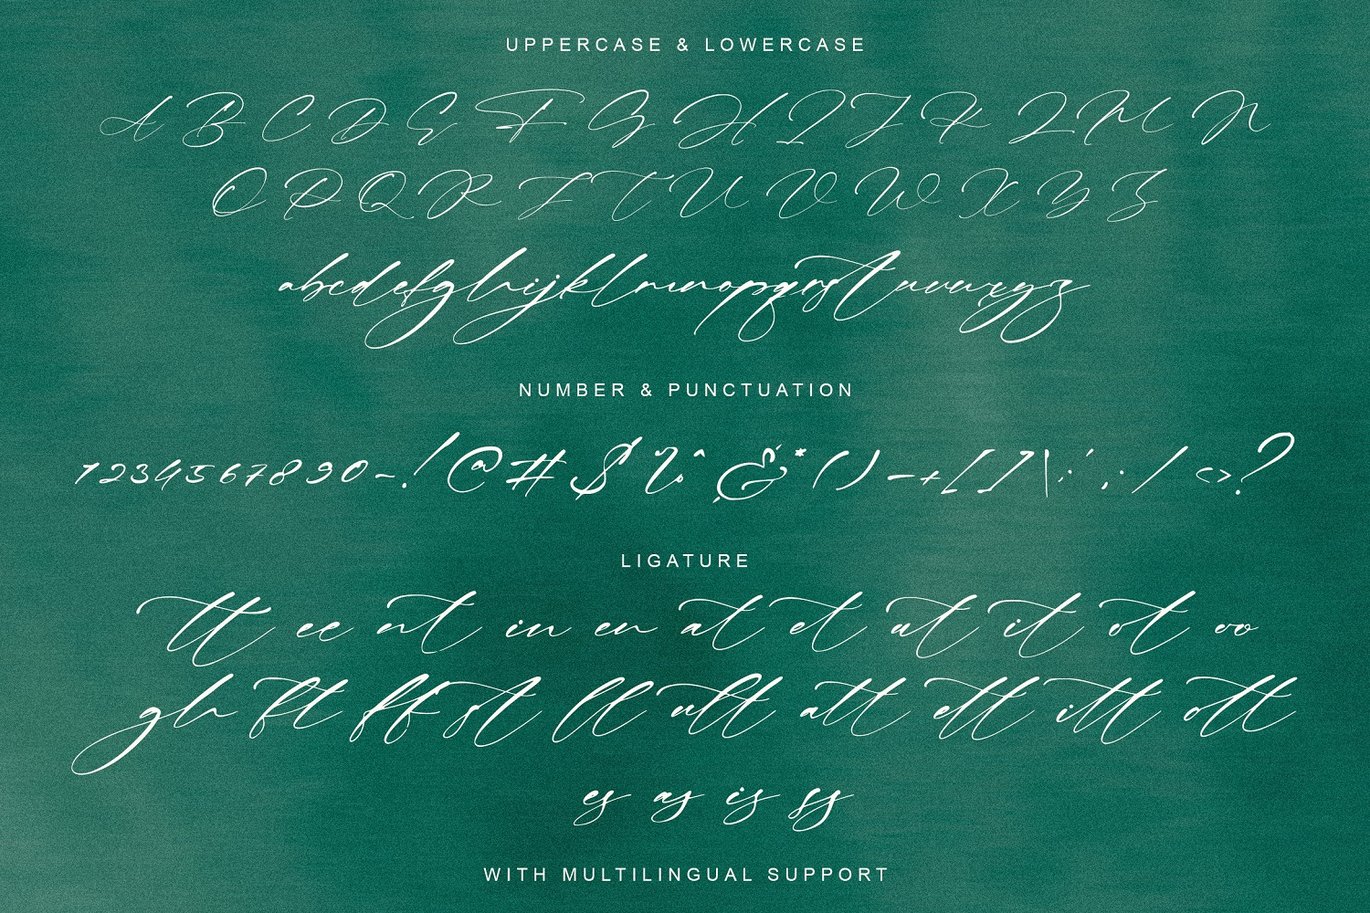 UPPERCASE & LOWERCASE
A B C D E F G H I J K L M N
O P Q R S T U V W X Y Z
abcdefghijklmnopqrstuvwxyz
NUMBER & PUNCTUATION
1234567890-!@#$%^&*()–+[]\:';/<>?
LIGATURE
tt ee nt in en at et ut it ot oo
gh ft ff st ll utt att ett itt ott
es as is ss
WITH MULTILINGUAL SUPPORT